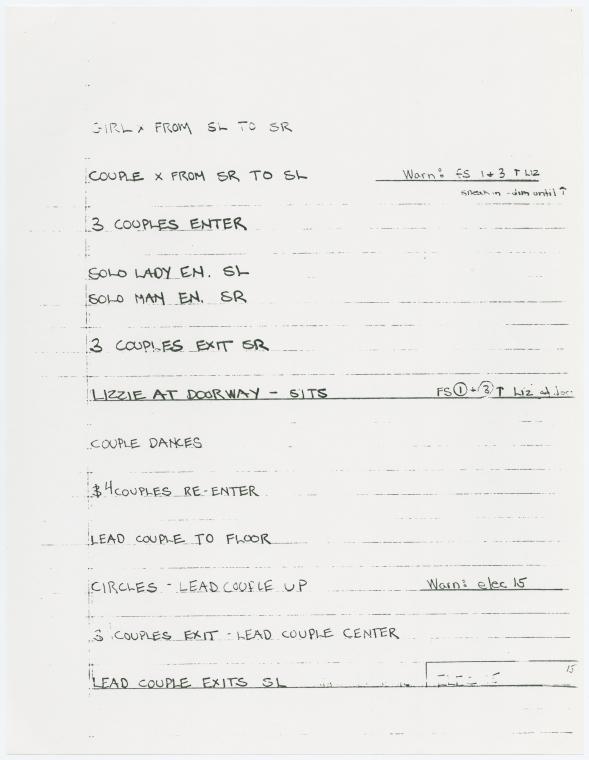 GIRL x FROM SL TO SR
COUPLE x FROM SR TO SL Warn: FS 1+3 ↑ LIZ
sneak in - dim until ↑
3 COUPLES ENTER
SOLO LADY EN. SL
SOLO MAN EN. SR
3 COUPLES EXIT SR
LIZZIE AT DOORWAY - SITS FS ① + ③ ↑ Liz at
COUPLE DANCES
4 COUPLES RE-ENTER
LEAD COUPLE TO FLOOR
CIRCLES - LEAD COUPLE UP Warn: elec 15
3 COUPLES EXIT - LEAD COUPLE CENTER
15
LEAD COUPLE EXITS SL